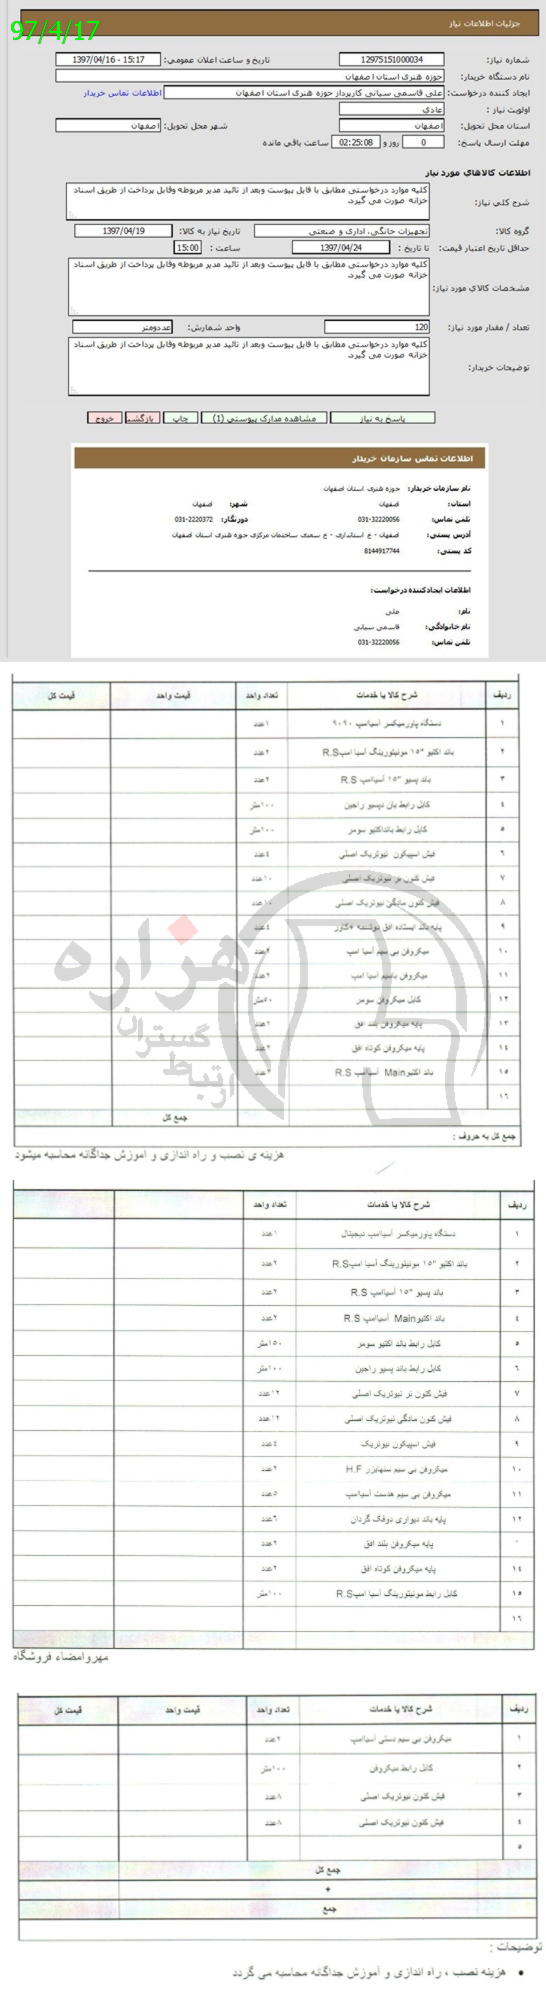 97/4/17
جزئیات اطلاعات نیاز
شماره نیاز: 12975151000034 تاریخ و ساعت اعلان عمومی: 15:17 - 1397/04/16
نام دستگاه خریدار: حوزه هنری استان اصفهان
ایجاد کننده درخواست: علی قاسمی سیانی کارپرداز حوزه هنری استان اصفهان اطلاعات تماس خریدار
اولویت نیاز : عادی
استان محل تحویل: اصفهان شهر محل تحویل: اصفهان
مهلت ارسال پاسخ: 0 روز و 02:25:08 ساعت باقی مانده
اطلاعات کالاهای مورد نیاز
شرح کلی نیاز: کلیه موارد درخواستی مطابق با فایل پیوست وبعد از تائید مدیر مربوطه وقابل پرداخت از طریق اسناد
خزانه صورت می گیرد.
گروه کالا: تجهیزات خانگی، اداری و صنعتی تاریخ نیاز به کالا: 1397/04/19
حداقل تاریخ اعتبار قیمت: تا تاریخ : 1397/04/24 ساعت : 15:00
مشخصات کالای مورد نیاز: کلیه موارد درخواستی مطابق با فایل پیوست وبعد از تائید مدیر مربوطه وقابل پرداخت از طریق اسناد
خزانه صورت می گیرد.
تعداد / مقدار مورد نیاز: 120 واحد شمارش: عددومتر
توضیحات خریدار: کلیه موارد درخواستی مطابق با فایل پیوست وبعد از تائید مدیر مربوطه وقابل پرداخت از طریق اسناد
خزانه صورت می گیرد.
پاسخ به نیاز مشاهده مدارک پیوستی (1) چاپ بازگشت خروج
اطلاعات تماس سازمان خریدار
نام سازمان خریدار: حوزه هنری استان اصفهان
استان: اصفهان شهر: اصفهان
تلفن تماس: 031-32220056 دورنگار: 031-2220372
آدرس پستی: اصفهان - خ استانداری - خ سعدی ساختمان مرکزی حوزه هنری استان اصفهان
کد پستی: 8144917744
اطلاعات ایجادکننده درخواست:
نام: علی
نام خانوادگی: قاسمی سیانی
تلفن تماس: 031-32220056
ردیف شرح کالا یا خدمات تعداد واحد قیمت واحد قیمت کل
۱ دستگاه پاورمیکسر آسیاامپ ۹۰۹۰ ۱عدد
۲ باند اکتیو "۱۵ مونیتورینگ آسیا امپR.S ۲عدد
۳ باند پسیو "۱۵ آسیاامپ R.S ۲عدد
٤ کابل رابط بان دپسیو راجین ۱۰۰متر
٥ کابل رابط بانداکتیو سومر ۱۰۰متر
٦ فیش اسپیکون نیوتریک اصلی ٤عدد
۷ فیش کنون نر نیوتریک اصلی ۱۰عدد
۸ فیش کنون مادگی نیوتریک اصلی ۱۰عدد
۹ پایه باند ایستاده افق دوشنبه +کاور ٤عدد
۱۰ میکروفن بی سیم آسیا امپ ۲عدد
۱۱ میکروفن باسیم آسیا امپ ۲عدد
۱۲ کابل میکروفن سومر ۵۰متر
۱۳ پایه میکروفن بلند افق ۲عدد
۱٤ پایه میکروفن کوتاه افق ۲عدد
۱٥ باند اکتیوMain آسیاامپ R.S ۲عدد
۱٦
جمع کل
جمع کل به حروف :
هزاره گستران ارتباط
هزینه ی نصب و راه اندازی و اموزش جداگانه محاسبه میشود
ردیف شرح کالا یا خدمات تعداد واحد
۱ دستگاه پاورمیکسر آسیاامپ دیجیتال ۱عدد
۲ باند اکتیو "۱۵ مونیتورینگ آسیا امپR.S ۲عدد
۳ باند پسیو "۱۵ آسیاامپ R.S ۲عدد
٤ باند اکتیوMain آسیاامپ R.S ۲عدد
٥ کابل رابط باند اکتیو سومر ۱۵۰متر
٦ کابل رابط باند پسیو راجین ۱۰۰متر
۷ فیش کنون نر نیوتریک اصلی ۱۲عدد
۸ فیش کنون مادگی نیوتریک اصلی ۱۲عدد
۹ فیش اسپیکون نیوتریک ٤عدد
۱۰ میکروفن بی سیم سنهایزر H.F ۲عدد
۱۱ میکروفن بی سیم هدست آسیاامپ ۵عدد
۱۲ پایه باند دیواری دوفک گردان ٦عدد
پایه میکروفن بلند افق ۲عدد
۱٤ پایه میکروفن کوتاه افق ۲عدد
۱٥ کابل رابط مونیتورینگ آسیا امپR.S ۱۰۰متر
۱٦
مهروامضاء فروشگاه
ردیف شرح کالا یا خدمات تعداد واحد قیمت واحد قیمت کل
۱ میکروفن بی سیم دستی آسیاامپ ۲عدد
۲ کابل رابط میکروفن ۱۰۰متر
۳ فیش کنون نیوتریک اصلی ۸عدد
٤ فیش کنون نیوتریک اصلی ۸عدد
٥
جمع کل
+
جمع
توضیحات :
• هزینه نصب ، راه اندازی و آموزش جداگانه محاسبه می گردد